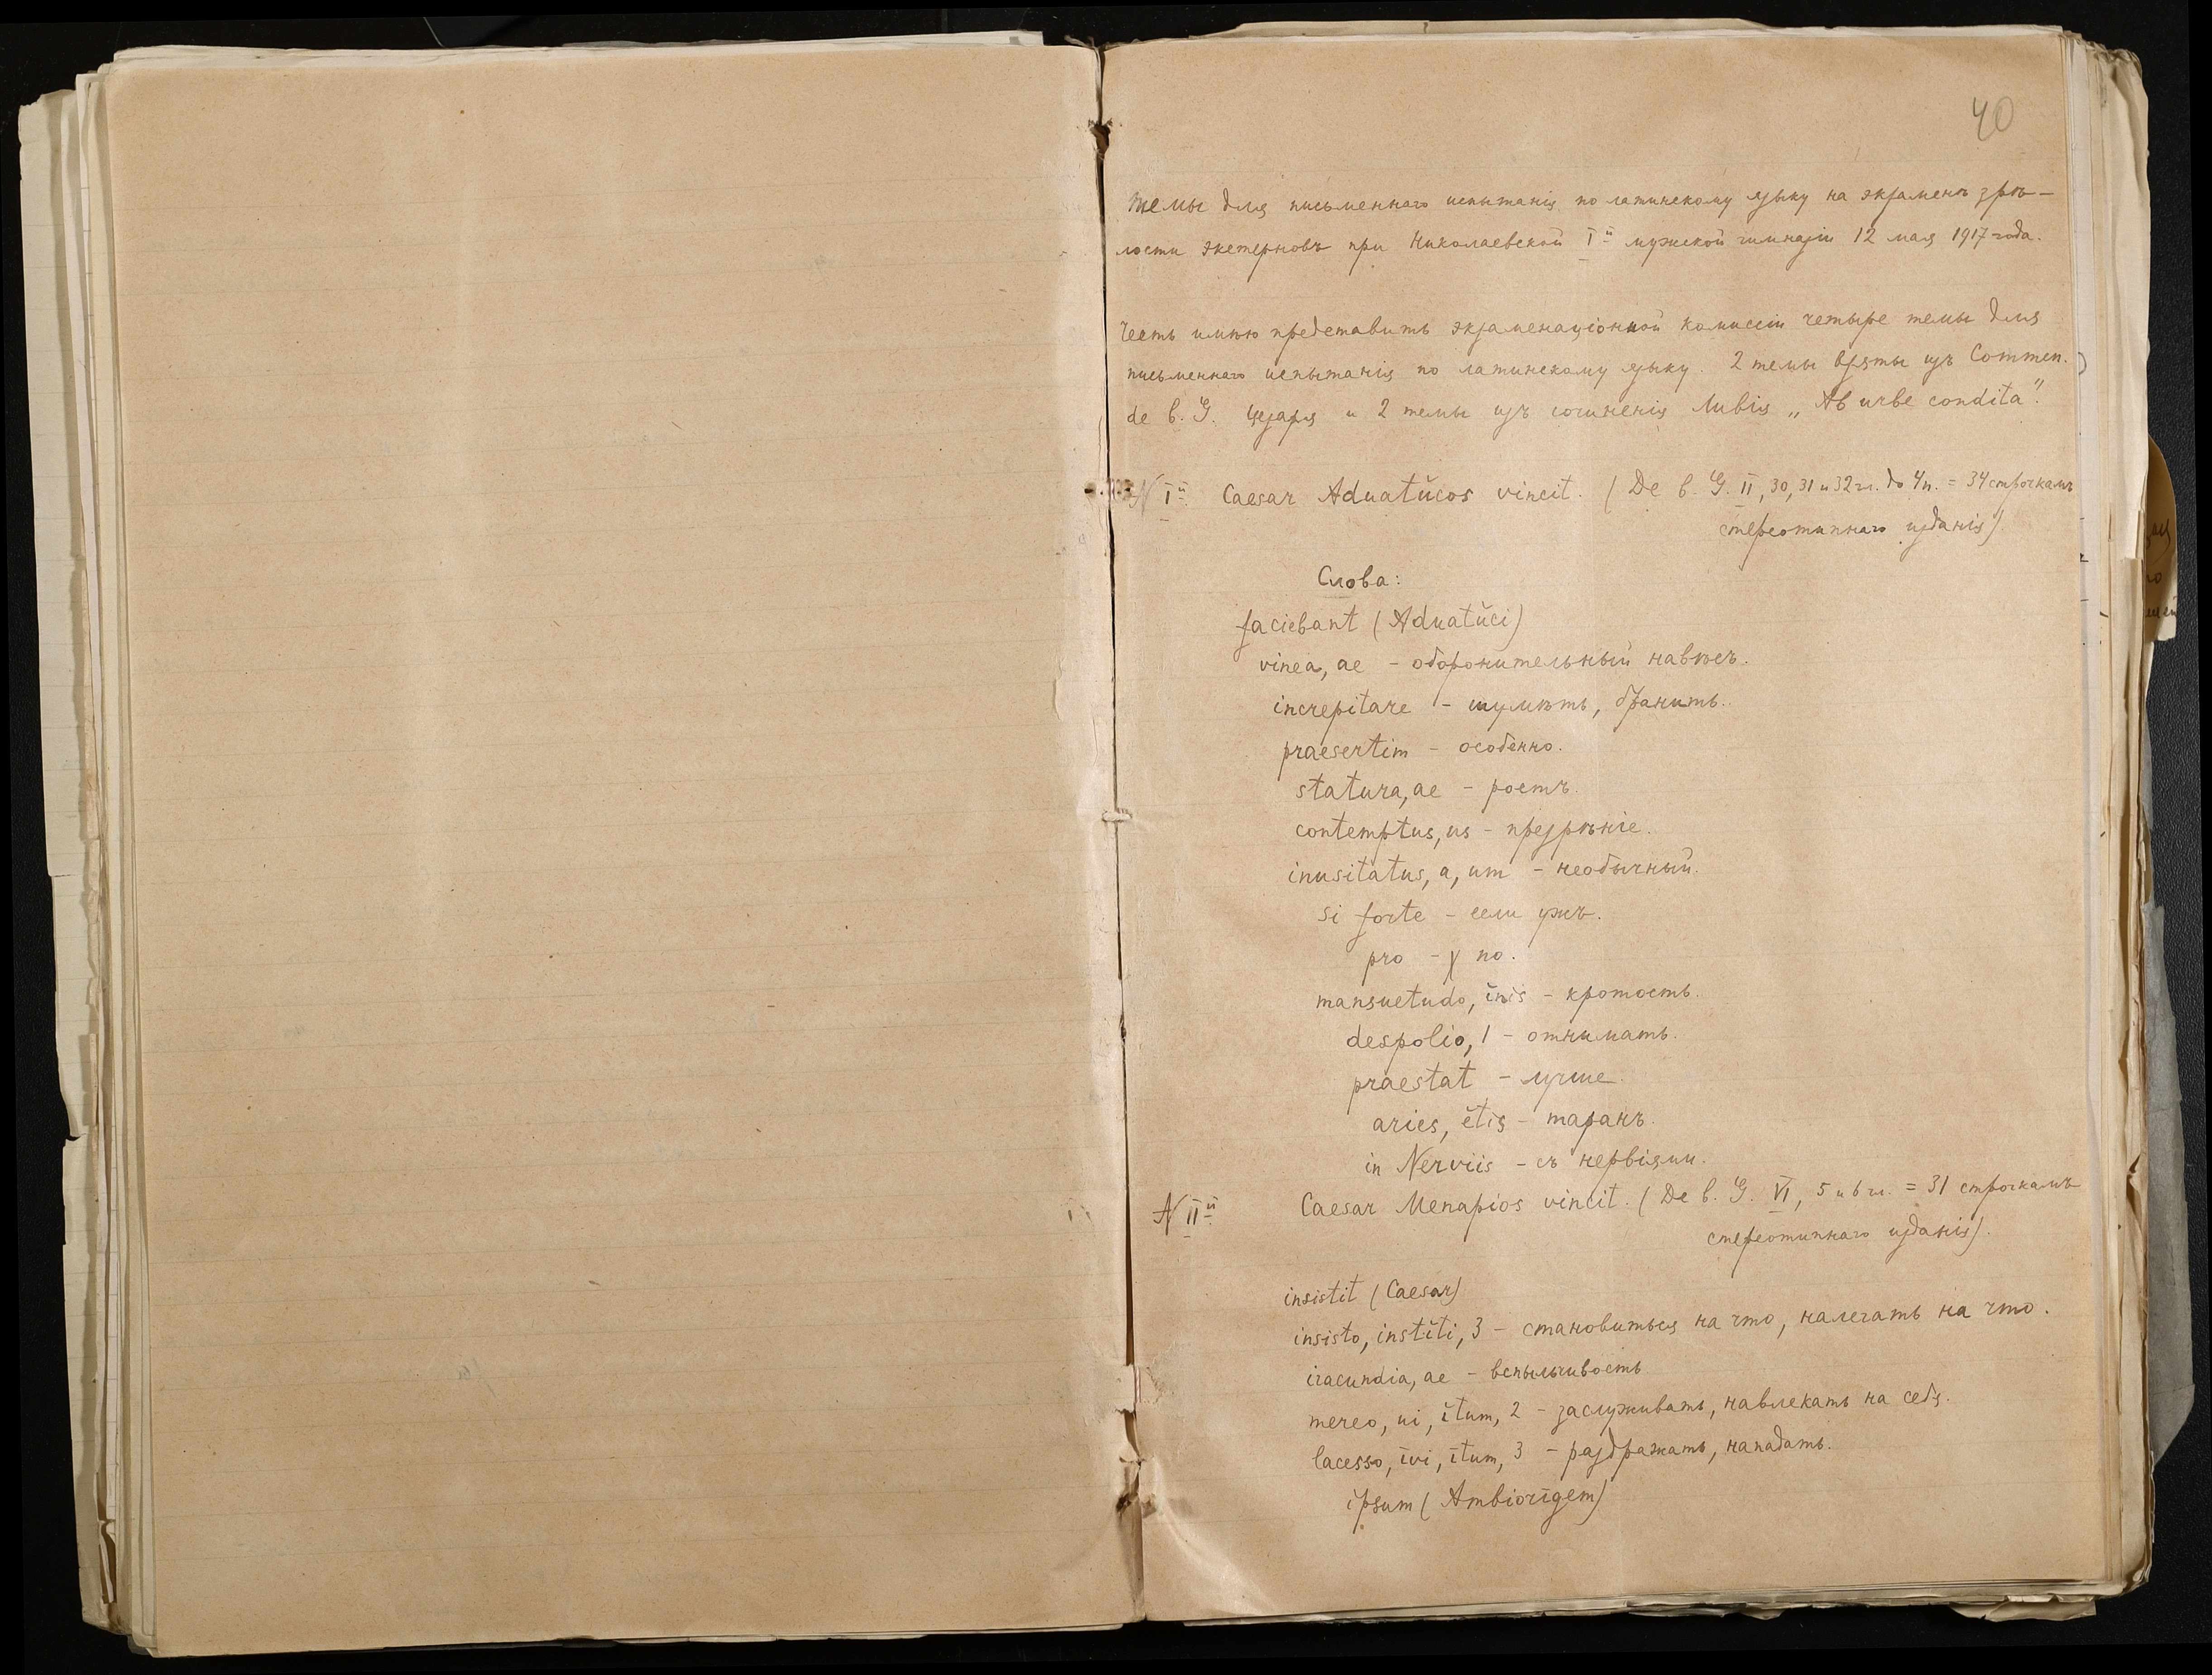 40
Темы для письменнаго испытанія по латинскому языку на экзаменъ зрѣ-
лости экстерновъ при Николаевской Iй мужской гимназіи 12 мая 1917 года.
Честь имѣю представить экзаменаціонной комиссіи четыре темы для
письменнаго испытанія по латинскому языку. 2 темы взяты изъ Commen.
de b. G. Цезаря и 2 темы изъ сочиненія Ливія „Ab urbe condita“.
N Iй Caesar Aduatŭcos vincit. (De b. G. II, 30, 31 и 32 гл. до 4 п. = 34 строчкамъ
стереотипнаго изданія)
Слова:
faciebant (Aduatŭci)
vinea, ae - оборонительный навѣсъ.
increpitare - шумѣть, бранить.
praesertim - особенно.
statura, ae - ростъ.
contemptus, us - презрѣніе.
inusitatus, a, um - необычный.
si forte - если ужъ.
pro - по.
mansuetudo, ĭnis - кротость.
despolio, 1 - отнимать.
praestat - лучше
aries, ĕtis - таранъ.
in Nerviis - съ нервіями.
N IIй Caesar Menapios vincit. (De b. G. VI, 5 и 6 гл. = 31 строчкамъ
стереотипнаго изданія).
insistit (Caesar)
insisto, institi, 3 - становиться на что, налегать на что.
iracundia, ae - вспыльчивость
mereo, ui, ĭtum, 2 - заслуживать, навлекать на себя.
lacesso, īvi, ītum, 3 - раздражать, нападать.
ipsum (Ambiorīgem)